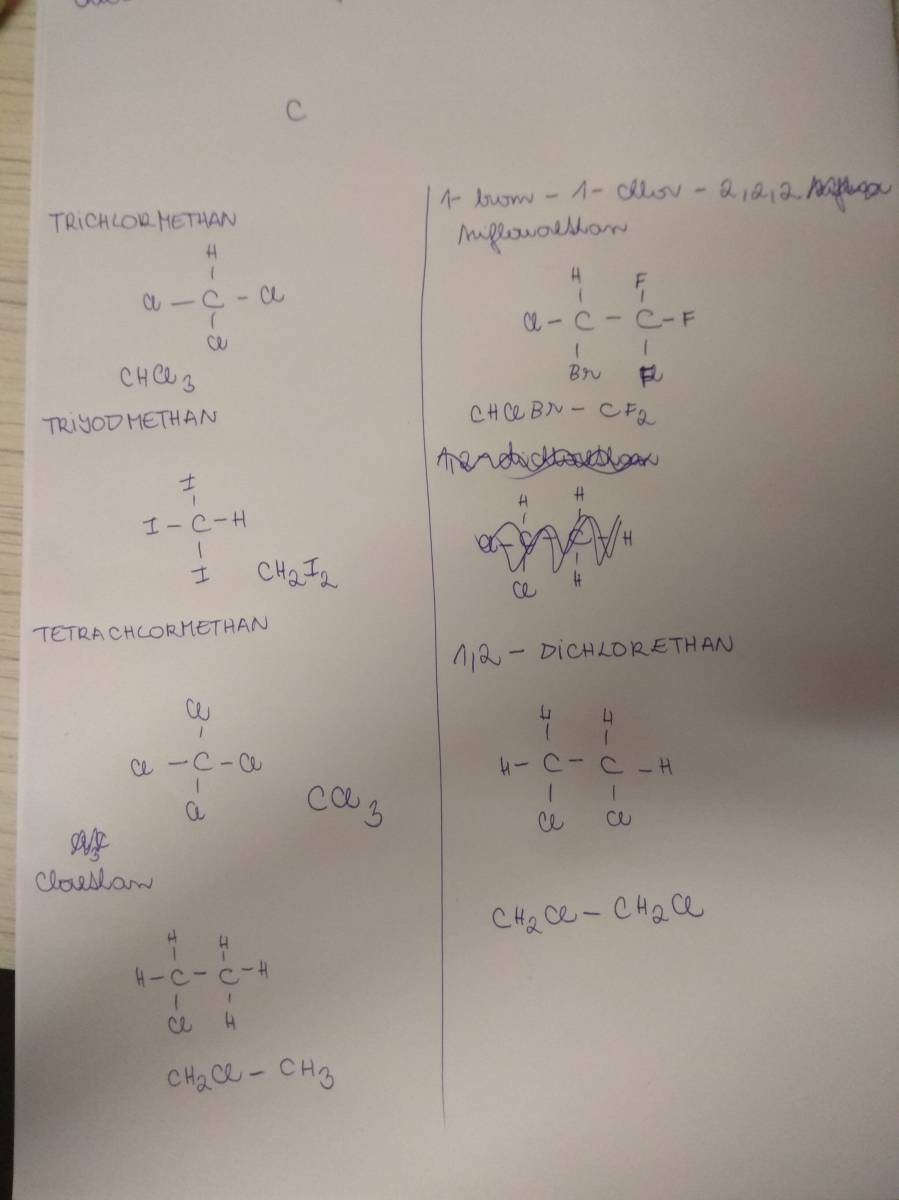 C
TRICHLORMETHAN
H
Cl – C – Cl
Cl
CHCl3
TRIYODMETHAN
I
I – C – H
I
CH2I2
TETRACHLORMETHAN
Cl
Cl – C – Cl
Cl
CCl3
Cloethan
H H
H – C – C – H
Cl H
CH2Cl – CH3
1- brom – 1- chlor – 2,2,2
trifluoroethan
H F
Cl – C – C – F
Br F
CHClBr – CF2
H H
Cl – C – C – H
Cl H
1,2 – DICHLORETHAN
H H
H – C – C – H
Cl Cl
CH2Cl – CH2Cl